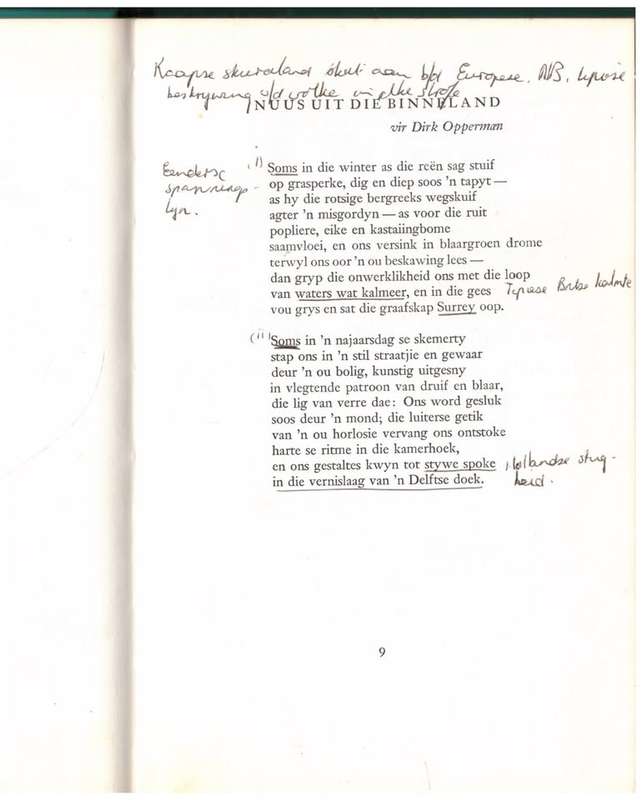 Kaapse skiereiland sluit aan b/d Europese. NB. tipiese
beskrywing v/d volke in elke strofe
NUUS UIT DIE BINNELAND
vir Dirk Opperman
Eenderse
spannings-
lyn.
(i) Soms in die winter as die reën sag stuif
op grasperke, dig en diep soos 'n tapyt—
as hy die rotsige bergreeks wegskuif
agter 'n misgordyn—as voor die ruit
popliere, eike en kastaiingbome
saamvloei, en ons versink in blaargroen drome
terwyl ons oor 'n ou beskawing lees—
dan gryp die onwerklikheid ons met die loop
van waters wat kalmeer, en in die gees Tipiese Britse kalmte
vou grys en sat die graafskap Surrey oop.
(ii) Soms in 'n najaarsdag se skemerty
stap ons in 'n stil straatjie en gewaar
deur 'n ou bolig, kunstig uitgesny
in vlegtende patroon van druif en blaar,
die lig van verre dae: Ons word gesluk
soos deur 'n mond; die luiterse getik
van 'n ou horlosie vervang ons ontstoke
harte se ritme in die kamerhoek,
en ons gestaltes kwyn tot stywe spoke Hollandse stug-
in die vernislaag van 'n Delftse doek. heid.
9